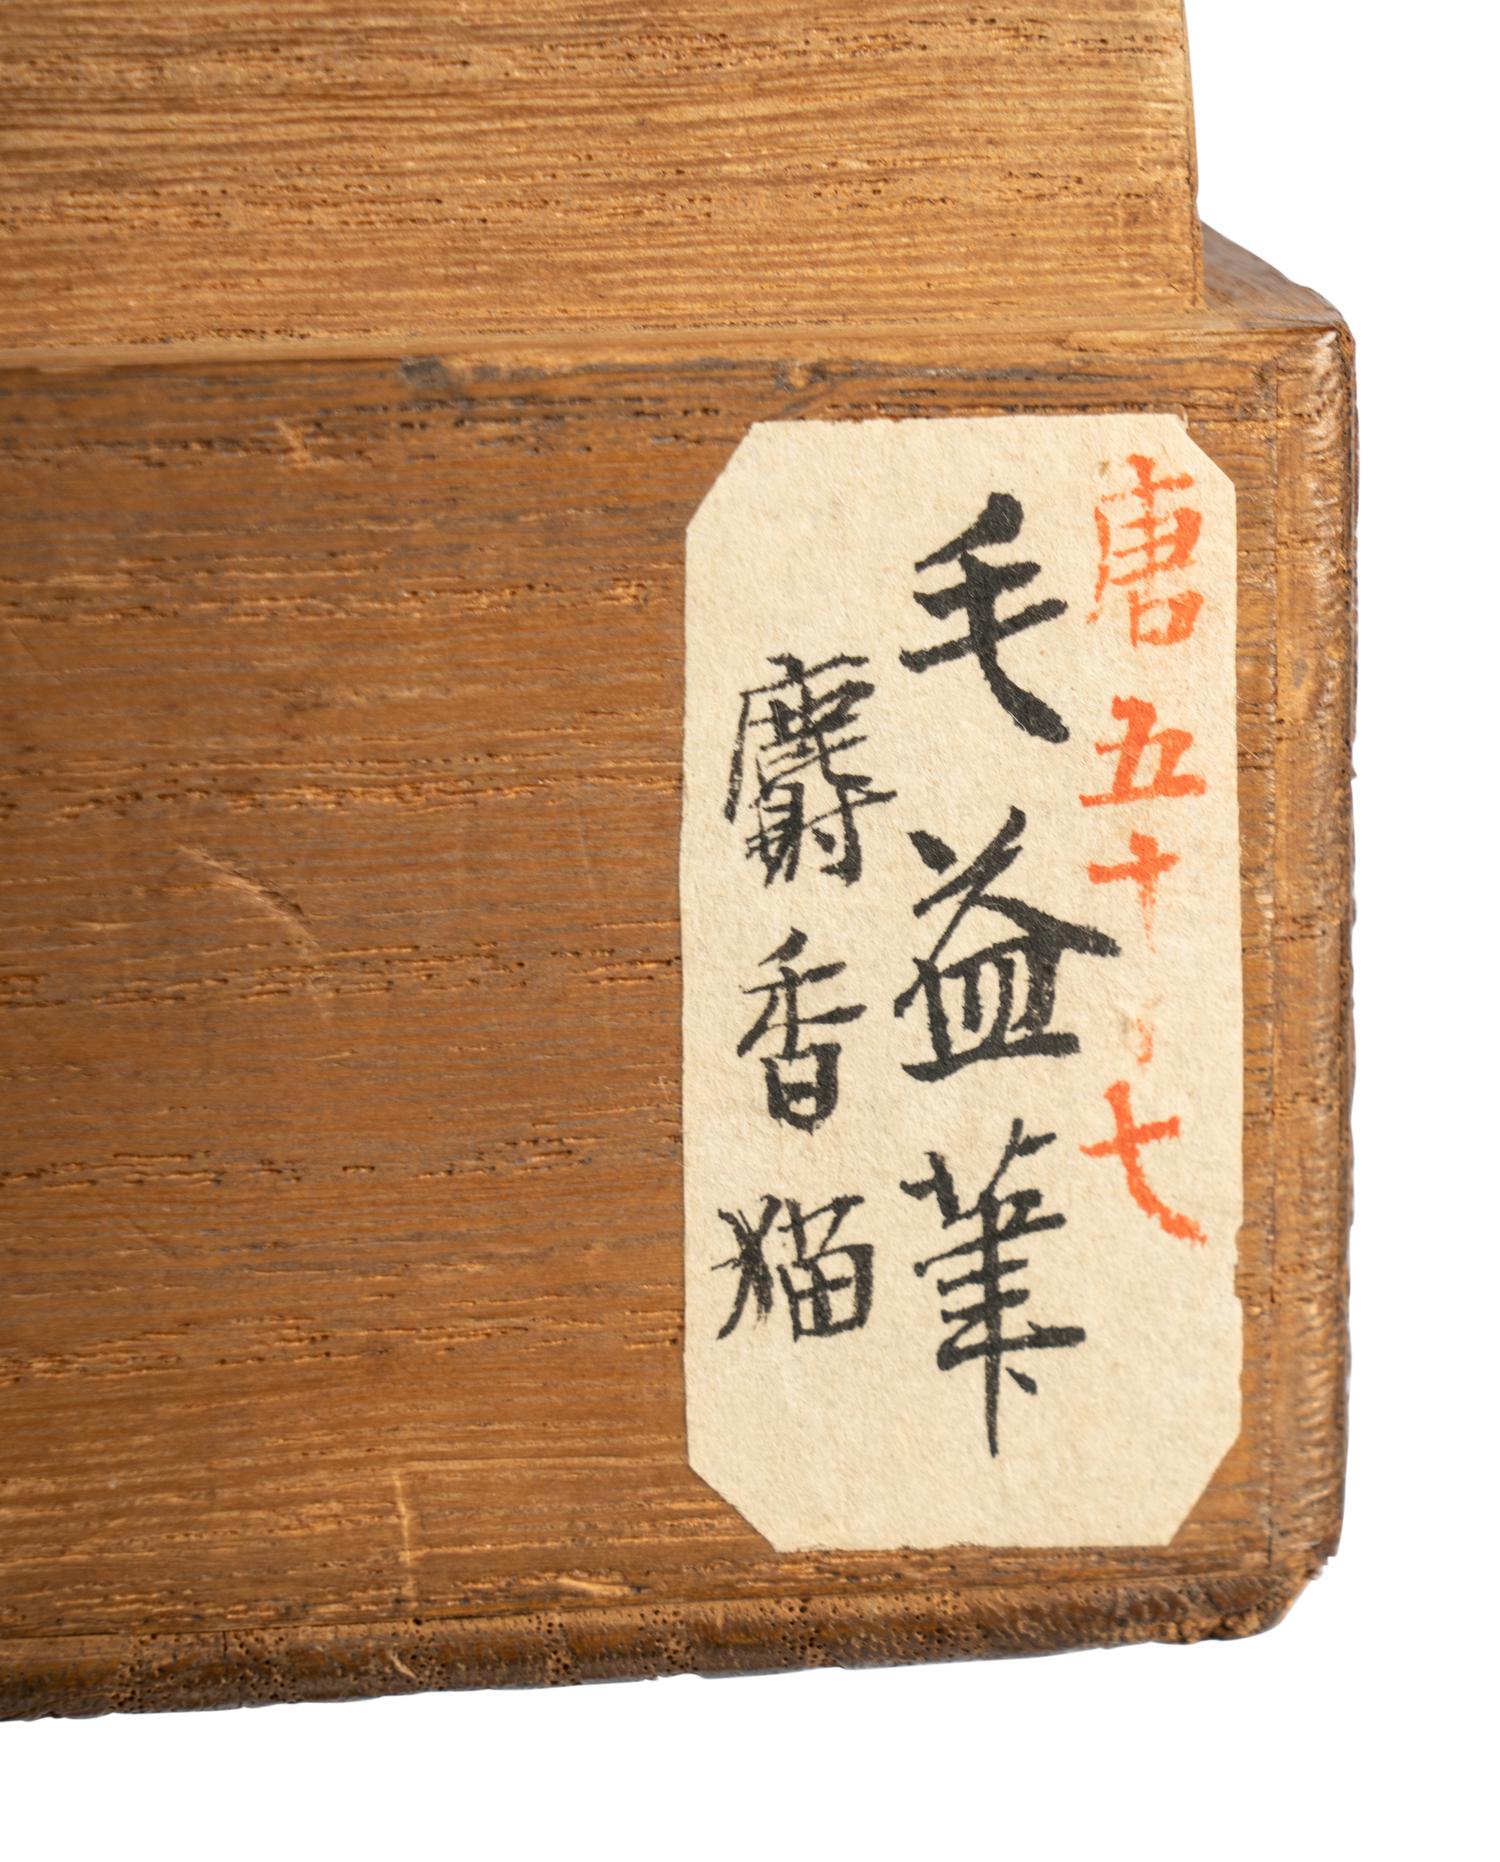 唐五十、七
毛益筆
麝香猫